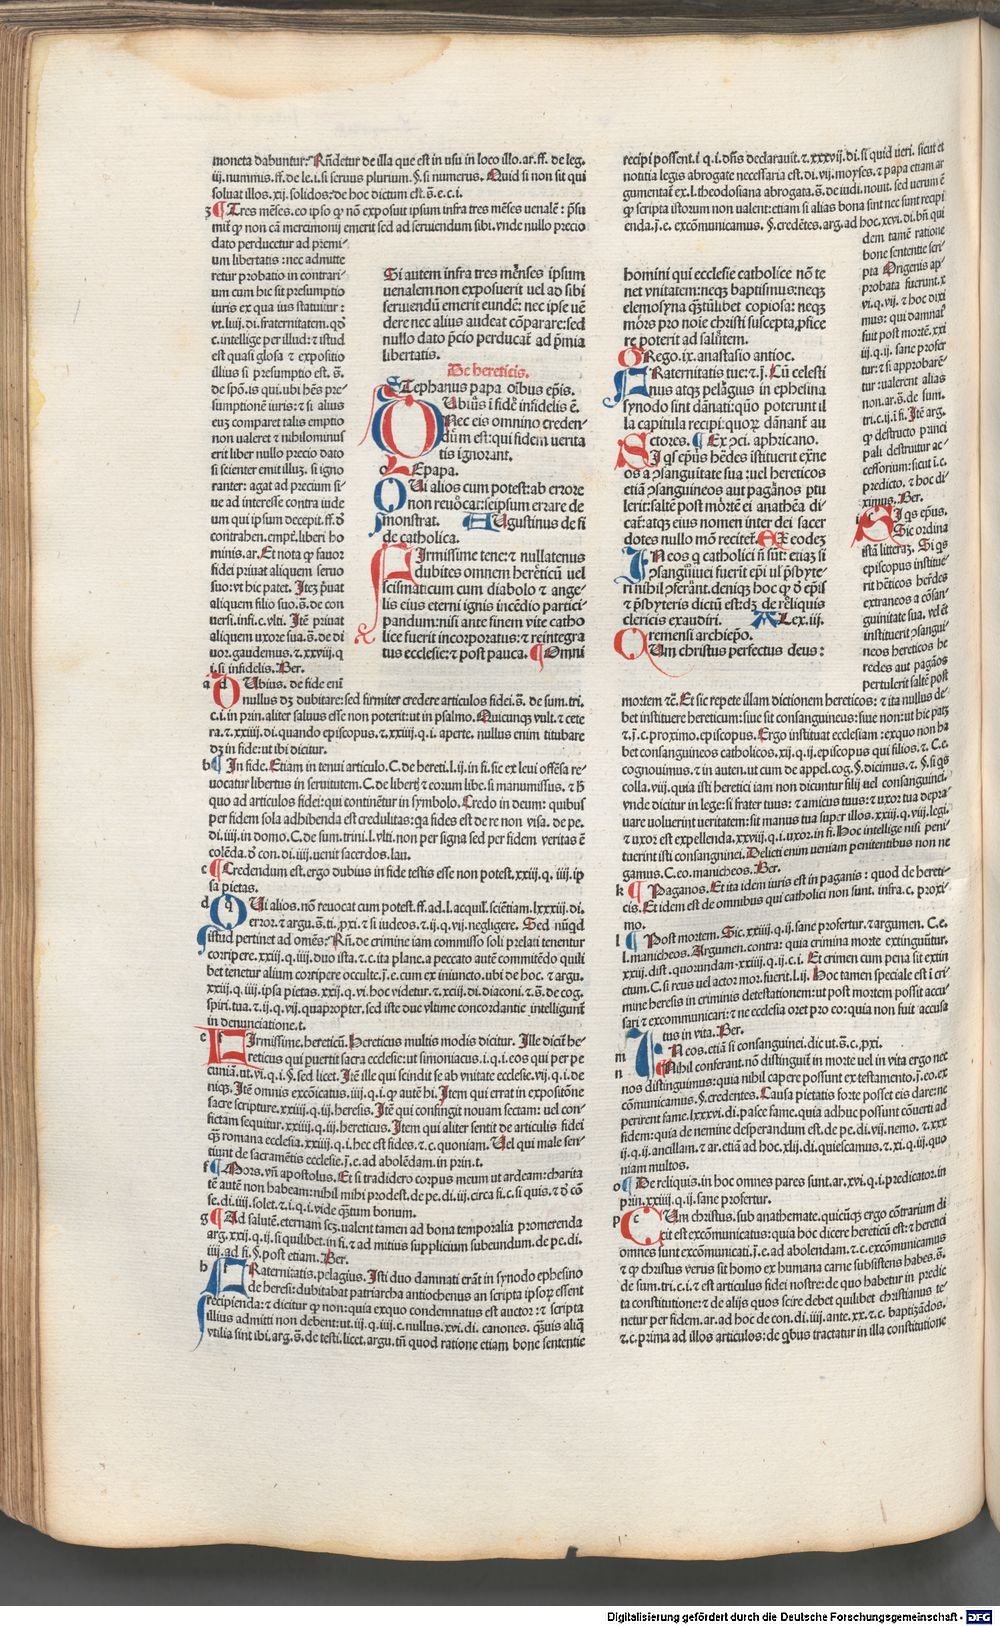 moneta dabuntur: Rñdetur de illa que est in usu in loco illo. ar. ff. de leg.
iij. nummis. ff. de le. i. si seruus plurium. §. si numerus. Quid si non sit qui
soluat illos. xij. solidos: de hoc dictum est. s̄. e. c. i.
Tres mēses. eo ipso qꝫ nō exposuit ipsum infra tres mēses venalē : p̄su
dato perducetur ad premi⸗
um libertatis : nec admitte
retur probatio in contrari⸗
um cum hic sit presumptio
iuris ex qua ius statuitur :
c. intellige per illud: ⁊ istud
est quasi glosa ⁊ expositio
illius si presumptio est. s̄.
de spōn. is qui. ubi hēs pre⸗
sumptionē iuris: ⁊ si alius
euꝫ comparet talis emptio
non ualeret ⁊ nihilominus
erit liber nullo precio dato
si scienter emit illuꝫ. si igno
ranter: agat ad precium si⸗
ue ad interesse contra iude
um qui ipsum decepit. ff. ð
contrahen. empt̄. liberi ho
minis. ar. Et nota qꝫ fauor
fidei priuat aliquem seruo
suo: vt hic patet. Itē p̄uat
aliquem filio suo. s̄. de con
uersi. infi. c. vlti. Itē priuat
aliquem uxore sua. s̄. de di
uor. gaudemus. ⁊. xxviij. q
i. si infidelis. Ber.
Si autem infra tres mēnses ipsum
uenalem non exposuerit uel ad sibi
seruiendū emerit eundē: nec ipse uē
dere nec alius audeat cōparare: sed
nullo dato p̄cio perducat̄ ad p̄mia
libertatis.
De hereticis.
STephanus papa oībus ep̄is.
DUbius ī fidē infidelis ē.
Nec eis omnino creden⸗
dūm est: qui fidem uerita
tis ignorant.
LEo papa.
QUi alios cum potest: ab errore
non reuōcat: seipsum errare de
monstrat. AUgustinus de fi
de catholica.
FIrmissime tene: ⁊ nullatenus
dubites omnem herēticū uel
scismaticum cum diabolo ⁊ ange⸗
lis eius eterni ignis incēdio partici⸗
pandum: nisi ante finem vite catho
lice fuerit incorporatus: ⁊ reintegra
tus ecclesie: ⁊ post pauca. ¶ Omni
a DUbius. de fide enī
nullus dꝫ dubitare: sed firmiter credere articulos fidei. s̄. de sum. tri.
c. i. in prin. aliter saluus esse non poterit: ut in psalmo. Quicunqꝫ vult. ⁊ cete
ra. ⁊. xxiiij. di. quando episcopus. ⁊. xxiiij. q. i. aperte. nullus enim titubare
dꝫ in fide: ut ibi dicitur.
b ¶ In fide. Etiam in tenui articulo. C. de hereti. l. ij. in fi. sic ex leui offēsa re⸗
uocatur libertus in seruitutem. C. de libert̄ ⁊ eorum libe. si manumissus. ⁊ h̄
quo ad articulos fidei: qui continētur in symbolo. Credo in deum: quibus
per fidem sola adhibenda est credulitas: qꝛ fides est de re non visa. de pe.
di. iiij. in domo. C. de sum. trini. l. vlti. non per signa sed per fidem veritas ē
colēda. ð con. di. iiij. uenit sacerdos. lau.
c ¶ Credendum est. ergo dubius in fide testis esse non potest. xxiij. q. iiij. ip
sa pietas.
d QUi alios. nō reuocat cum potest. ff. ad. l. acquil. sciētiam. lxxxiij. di.
error. ⁊ argu. s̄. ti. pxi. ⁊ si iudeos. ⁊ ij. q. vij. negligere. Sed nūqd
istud pertinet ad omēs: Rñ. de crimine iam commisso soli prelati tenentur
corripere. xxiij. q. iiij. duo ista. ⁊ c. ita plane. a peccato autē commitēdo quili
bet tenetur alium corripere occulte. j̄. e. cum ex iniuncto. ubi de hoc. ⁊ argu.
xxiij. q. iiij. ipsa pietas. xxij. q. vi. hoc videtur. ⁊ xcij. di. diaconi. ⁊. s̄. de cog.
spiri. tua. ⁊ ij. q. vij. quapropter. sed iste due vltime concordantie intelligunt̄
in denunciatione. t.
e FIrmissime. hereticū. Hereticus multis modis dicitur. Ille dicit̄ he⸗
reticus qui puertit sacra ecclesie: ut simoniacus. i. q. i. eos qui per pe
cuniā. ut. vi. q. i. §. sed licet. Itē ille qui scindit se ab vnitate ecclesie. vij. q. i. de
niqꝫ. Itē omnis excōicatus. iiij. q. i. qꝫ autē hi. Item qui errat in expositōne
sacre scripture. xxiiij. q. iij. heresis. Itē qui confingit nouam sectam: uel con⸗
fictam sequitur. xxiiij. q. iij. hereticus. Item qui aliter sentit de articulis fidei
qꝫ romana ecclesia. xxiiij. q. i. hec est fides. ⁊ c. quoniam. Uel qui male sen⸗
tiunt de sacramētis ecclesie. j̄. e. ad abolēdam. in prin. t.
f ¶ Mors. vn̄ apostolus. Et si tradidero corpus meum ut ardeam: charita
tē autē non habeam: nihil mihi prodest. de pe. di. iij. circa fi. c. si quis. ⁊ ð cō
se. di. iiij. solet. ⁊ i. q. i. vide qꝫtum bonum.
g ¶ Ad salutē. eternam scꝫ. valent tamen ad bona temporalia promerenda
arg. xxij. q. ij. si quilibet. in fi. ⁊ ad mitius supplicium subeundum. de pe. di.
iiij. ad fi. §. post etiam. Ber.
h FRaternitatis. pelagius. Isti duo damnati erāt in synodo ephesino
de heresi: dubitabat patriarcha antiochenus an scripta ipsoꝝ essent
recipienda: ⁊ dicitur qꝫ non: quia exquo condemnatus est auctor: ⁊ scripta
illius admitti non debent: ut. iij. q. iij. c. nullus. xvi. di. canones. qꝫuis aliqꝫ
vtilia sint ibi. arg. s̄. de testi. licet. argu. tn̄ quod ratione etiam bone sententie
recipi possent. i. q. i. dn̄s declarauit. ⁊. xxxvij. di. si quid ueri. sicut et
notitia legis abrogate necessaria est. di. vij. moyses. ⁊ papa etiam ar
gumentat̄ ex. l. theodosiana abrogata. s̄. de iudi. nouit. sed uerum ē
qꝫ scripta istorum non ualent: etiam si alias bona sint nec sunt recipi
enda. j̄. e. excōmunicamus. §. credētes. arg. ad hoc. xvi. di. bn̄ qui
dem tamē ratione
bone sententie scri⸗
pta Origenis ap⸗
probata fuerunt. x
vi. q. vij. ⁊ hoc dixi
mus: qui damnat̄
fuit post mortē. xxi
iij. q. ij. sane profer
tur: ⁊ si approbarē⸗
tur: ualerent alias
non. ar. s̄. de sum.
tri. c. ij. ī fi. Itē arg.
qꝫ destructo princi
pali destruitur ac⸗
cessorium: sicut i. c.
predicto. ⁊ hoc di
ximus. Ber.
homini qui ecclesie catholice nō te
net vnitatem: neqꝫ baptismus: neqꝫ
elemosyna qꝫtūlibet copiosa: neqꝫ
mōrs pro noīe christi suscepta, pfice
re poterit ad salūtem.
GRego. ix. anastasio antioc.
FRaternitatis tue: ⁊. j̄. Cū celesti
nus atqꝫ pelāgius in ephesina
synodo sint dānati: quō poterunt il
la capitula recipi: quoꝝ dānant̄ au
ctores. ¶ Ex ↄci. aphricano.
SI qs ep̄us hēdes īstituerit exr̄ne
os a ↄsanguītate sua : uel hereticos
etiā ↄsanguineos aut pagānos p̄tu
lerit: saltē post mōrtē ei anathēa di
cat̄: atqꝫ eius nomen inter dei sacer
dotes nullo mō recitet̄. EX eodeꝫ
IN eos q catholici n̄ sūt: etiaꝫ si
ↄsangūinei fuerit ep̄i ul̓ p̄sbyte⸗
ri nihil ↄferānt. deniqꝫ hoc qꝫ ð ep̄is
⁊ p̄sbyteris dictū est: dꝫ de rēliquis
clericis exaudiri. ALex. iij.
Cremensi archiep̄o.
CUm christus perfectus deus :
i SI qs ep̄us.
Sic ordina
istā litteraꝫ. Si qs
episcopus institue⸗
rit hēticos her̄des
extraneos a cōsan⸗
guinitate sua. vel ēt
instituerit ↄsangui⸗
neos hereticos he
redes aut pagāos
pertulerit saltē post
mortem ⁊c̄. Et sic repete illam dictionem hereticos: ⁊ ita nullus de⸗
bet instituere hereticum: siue sit consanguineus: siue non: ut hic patꝫ
⁊. j̄. c. proximo. episcopus. Ergo instituat ecclesiam: exquo non ha
bet consanguineos catholicos. xij. q. ij. episcopus qui filios. ⁊. C. e.
cognouimus. ⁊ in auten. ut cum de appel. cog. §. dicimus. ⁊. §. si qs
colla. viij. quia isti heretici iam non dicuntur filij uel consanguinei.
vnde dicitur in lege: si frater tuus: ⁊ amicus tuus: ⁊ uxor tua depra⸗
uare uoluerint ueritatem: sit manus tua super illos. xxiij. q. viij. legi.
⁊ uxor est expellenda. xxviij. q. i. uxor. in fi. Hoc intellige nisi peni⸗
tuerint isti consanguinei. Delicti enim ueniam penitentibus non ne
gamus. C. eo. manicheos. Ber.
k ¶ Paganos. Et ita idem iuris est in paganis : quod de hereti⸗
cis. Et idem est de omnibus qui catholici non sunt. infra. c. proxi⸗
mo.
l ¶ Post mortem. Sic. xxiiij. q. ij. sane profertur. ⁊ argumen. C. e.
l. manicheos. Argumen. contra: quia crimina morte extinguūtur.
xxiij. dist. quorundam. xxiiij. q. ij. c. i. Et crimen cum pena sit extin
ctum. C. si reus uel actor mor. fuerit. l. ij. Hoc tamen speciale est ī cri⸗
mine heresis in criminis detestationem: ut post mortem possit accu⸗
sari ⁊ excommunicari: ⁊ ne ecclesia oret pro eo: quia non fuit accusa
tus in vita. Ber.
m IN eos. etiā si consanguinei. dic ut. s̄. c. pxi.
n ¶ Nihil conferant. nō distinguit̄ in morte uel in vita ergo nec
nos distinguimus: quia nihil capere possunt ex testamento. j̄. eo. ex
cōmunicamus. §. credentes. Causa pietatis forte posset eis dare: ne
perirent fame. lxxxvi. di. pasce fame. quia adhuc possunt cōuerti ad
fidem: quia de nemine desperandum est. de pe. di. vij. nemo. ⁊. xxx
ij. q. ij. ancillam. ⁊ ar. etiā ad hoc. xlij. di. quiescamus. ⁊. xi. q. iij. quo
niam multos.
o ¶ De reliquis. in hoc omnes pares sunt. ar. xvi. q. i. predicator. in
prin. xxiiij. q. ij. sane profertur.
p CUm christus. sub anathemate. quicūqꝫ ergo cōtrarium di
xit est excōmunicatus: quia hoc dicere hereticū est: ⁊ heretici
omnes sunt excōmunicati. j̄. e. ad abolendam. ⁊. c. excōmunicamus
⁊ qꝫ christus verus sit homo ex humana carne subsistens habes. s̄.
de sum. tri. c. i. ⁊ est articulus fidei nostre: de quo habetur in predic
ta constitutione: ⁊ de alijs quos scire debet quilibet christianus te⸗
netur per fidem. ar. ad hoc de con. di. iiij. ante. xx. ⁊. c. baptizādos.
⁊. c. prima ad illos articulos: de qbus tractatur in illa constitutione
Digitalisierung gefördert durch die Deutsche Forschungsgemeinschaft - DFG